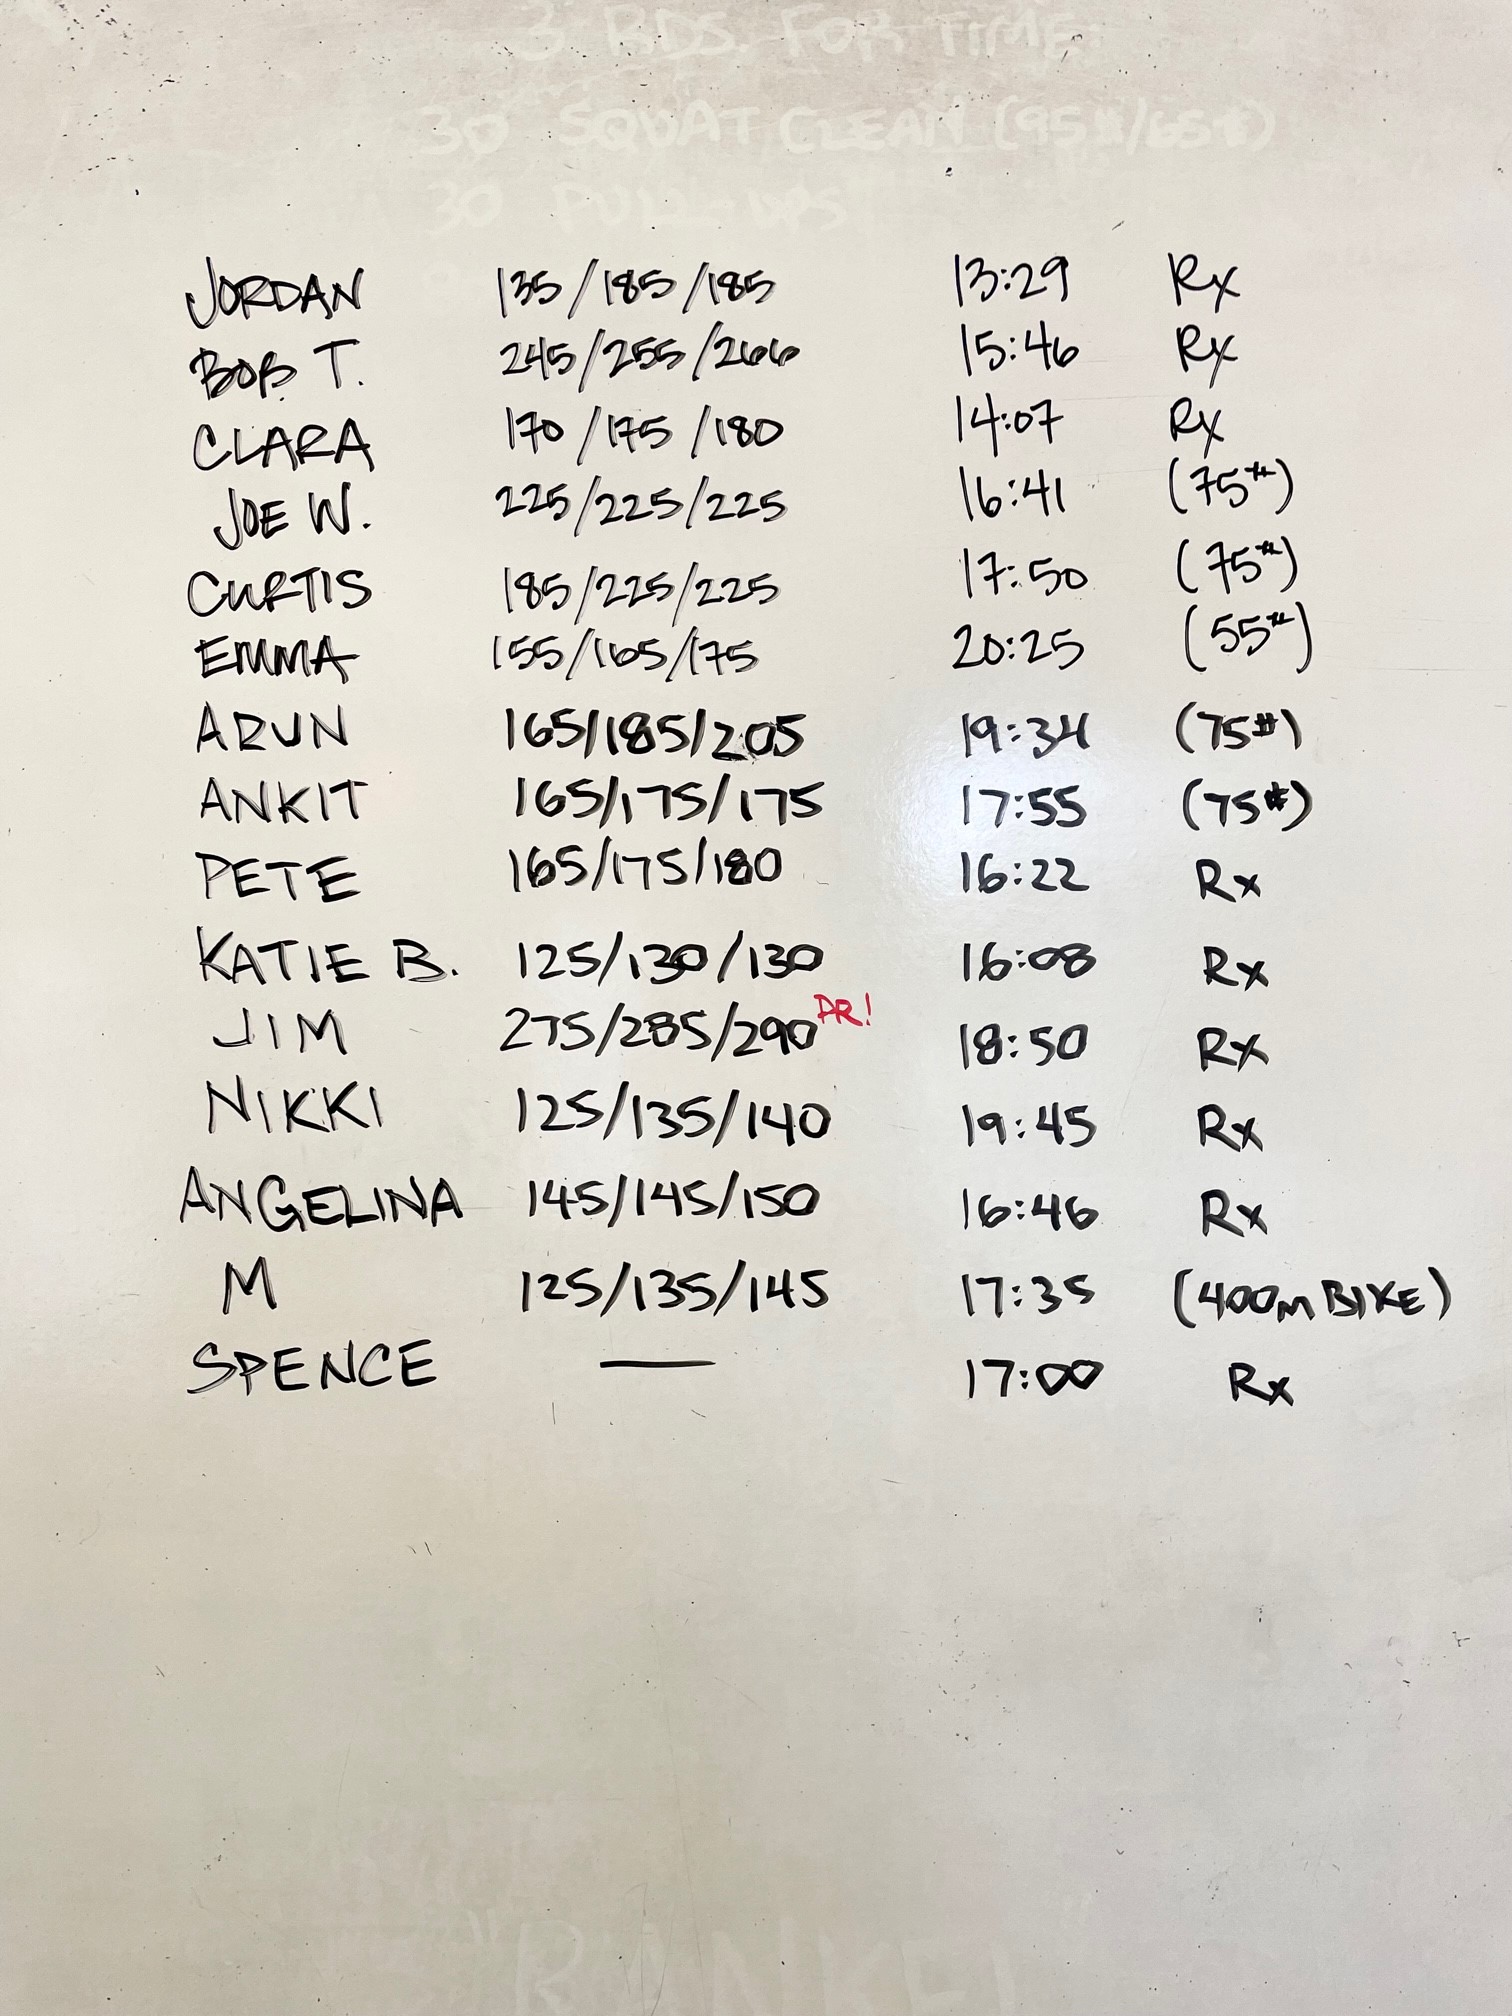 3 RDS. FOR TIME:
30 SQUAT CLEAN (95#/65#)
30 PULL-UPS
JORDAN 135/185/185 13:29 Rx
BOB T. 245/255/266 15:46 Rx
CLARA 170/175/180 14:07 Rx
JOE W. 225/225/225 16:41 (75#)
CURTIS 185/225/225 17:50 (75#)
EMMA 155/165/175 20:25 (55#)
ARUN 165/185/205 19:34 (75#)
ANKIT 165/175/175 17:55 (75#)
PETE 165/175/180 16:22 Rx
KATIE B. 125/130/130 16:08 Rx
JIM 275/285/290 PR! 18:50 Rx
NIKKI 125/135/140 19:45 Rx
ANGELINA 145/145/150 16:46 Rx
M 125/135/145 17:35 (400m BIKE)
SPENCE — 17:00 Rx